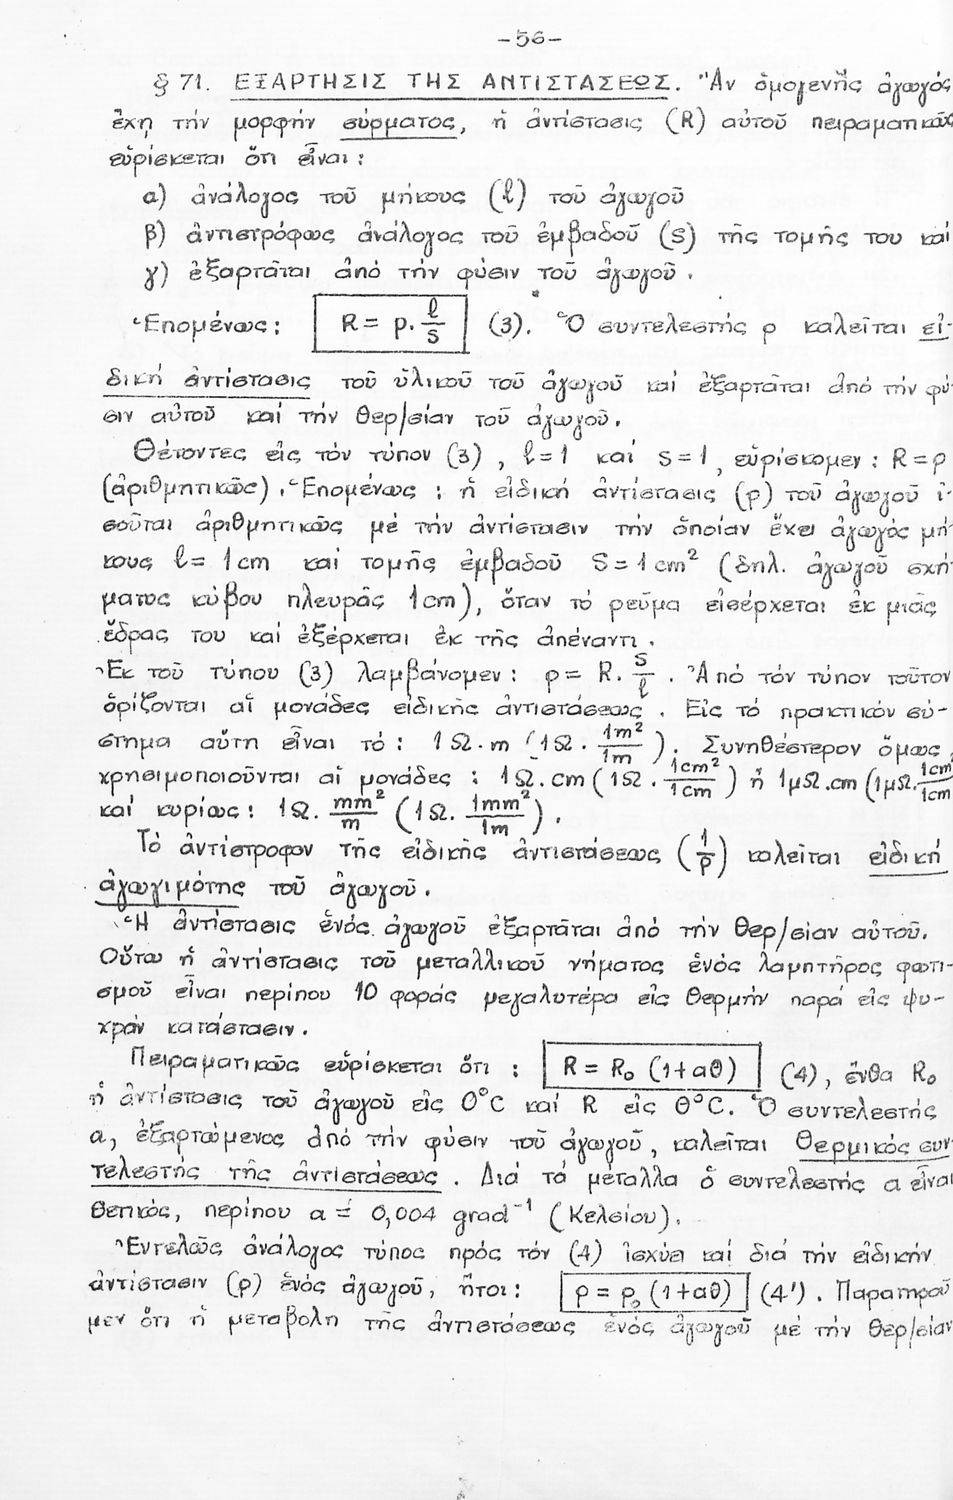 -56-
§ 71. ΕΞΑΡΤΗΣΙΣ ΤΗΣ ΑΝΤΙΣΤΑΣΕΩΣ. Ἂν ὁμογενὴς ἀγωγός
ἔχῃ τήν μορφήν σύρματος, ἡ ἀντίστασις (R) αὐτοῦ πειραματικῶς
εὑρίσκεται ὅτι εἶναι:
α) ἀνάλογος τοῦ μήκους (l) τοῦ ἀγωγοῦ
β) ἀντιστρόφως ἀνάλογος τοῦ ἐμβαδοῦ (S) τῆς τομῆς του καί
γ) ἐξαρτᾶται ἀπό τήν φύσιν τοῦ ἀγωγοῦ.
Ἑπομένως: R = ρ. l/S (3). Ὁ συντελεστής ρ καλεῖται εἰ-
δική ἀντίστασις τοῦ ὑλικοῦ τοῦ ἀγωγοῦ καί ἐξαρτᾶται ἀπό τήν φύ-
σιν αὐτοῦ καί τήν θερ/σίαν τοῦ ἀγωγοῦ.
Θέτοντες εἰς τόν τύπον (3), l=1 καί S=1, εὑρίσκομεν: R=ρ
(ἀριθμητικῶς). Ἑπομένως: ἡ εἰδική ἀντίστασις (ρ) τοῦ ἀγωγοῦ ἰ-
σοῦται ἀριθμητικῶς μέ τήν ἀντίστασιν τήν ὁποίαν ἔχει ἀγωγός μή-
κους l= 1cm καί τομῆς ἐμβαδοῦ S=1cm² (δηλ. ἀγωγοῦ σχή-
ματος κύβου πλευρᾶς 1cm), ὅταν τό ρεῦμα εἰσέρχεται ἐκ μιᾶς
ἕδρας του καί ἐξέρχεται ἐκ τῆς ἀπέναντι.
Ἐκ τοῦ τύπου (3) λαμβάνομεν: ρ= R. S/l. Ἀπό τόν τύπον τοῦτον
ὁρίζονται αἱ μονάδες εἰδικῆς ἀντιστάσεως. Εἰς τό πρακτικόν σύ-
στημα αὕτη εἶναι τό: 1Ω.m (1Ω. 1m²/1m). Συνηθέστερον ὅμως
χρησιμοποιοῦνται αἱ μονάδες: 1Ω.cm (1Ω. 1cm²/1cm) ἤ 1μΩ.cm (1μΩ. 1cm²/1cm
καί κυρίως: 1Ω. mm²/m (1Ω. 1mm²/1m).
Τό ἀντίστροφον τῆς εἰδικῆς ἀντιστάσεως (1/ρ) καλεῖται εἰδική
ἀγωγιμότης τοῦ ἀγωγοῦ.
Ἡ ἀντίστασις ἑνός ἀγωγοῦ ἐξαρτᾶται ἀπό τήν θερ/σίαν αὐτοῦ.
Οὕτω ἡ ἀντίστασις τοῦ μεταλλικοῦ νήματος ἑνός λαμπτῆρος φωτι-
σμοῦ εἶναι περίπου 10 φοράς μεγαλυτέρα εἰς θερμήν παρά εἰς ψυ-
χράν κατάστασιν.
Πειραματικῶς εὑρίσκεται ὅτι: R = R₀ (1+αθ) (4), ἔνθα R₀
ἡ ἀντίστασις τοῦ ἀγωγοῦ εἰς 0°C καί R εἰς θ°C. Ὁ συντελεστής
α, ἐξαρτώμενος ἀπό τήν φύσιν τοῦ ἀγωγοῦ, καλεῖται θερμικός συν-
τελεστής τῆς ἀντιστάσεως. Διά τά μέταλλα ὁ συντελεστής α εἶναι
θετικός, περίπου α = 0,004 grad⁻¹ (Κελσίου).
Ἐντελῶς ἀνάλογος τύπος πρός τόν (4) ἰσχύει καί διά τήν εἰδικήν
ἀντίστασιν (ρ) ἑνός ἀγωγοῦ, ἤτοι: ρ = ρ₀ (1+αθ) (4'). Παρατηροῦ
μεν ὅτι ἡ μεταβολή τῆς ἀντιστάσεως ἑνός ἀγωγοῦ μέ τήν θερ/σίαν